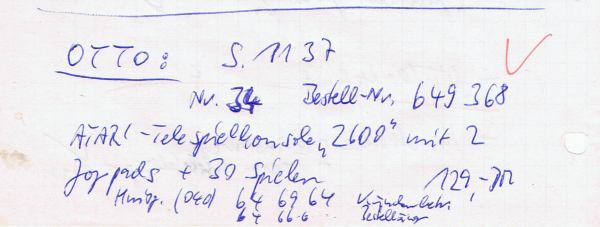 OTTO: S. 1137
Nr. 34 Bestell-Nr. 649 368
ATARI-Telespielkonsole „2600" mit 2
Joypads + 30 Spielen 129,-DM
(040) 64 69 64
64 66-0 Bestellung